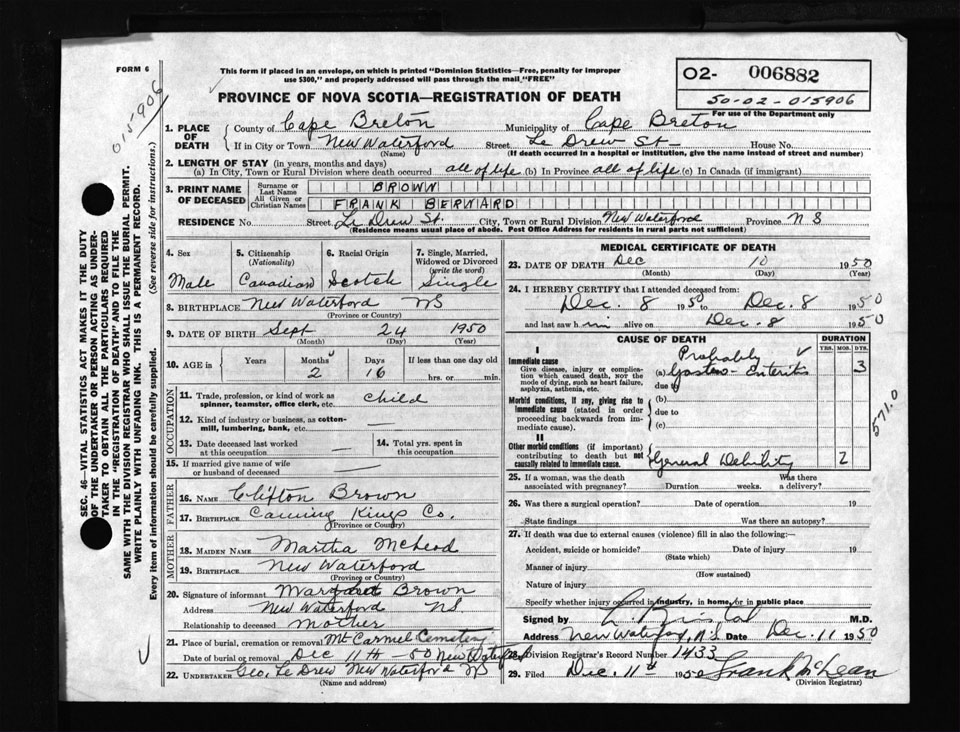 FORM 6
015906
This form if placed in an envelope, on which is printed "Dominion Statistics—Free, penalty for improper
use $300," and properly addressed will pass through the mail "FREE"
PROVINCE OF NOVA SCOTIA—REGISTRATION OF DEATH
02- 006882
50-02-015906
For use of the Department only
1. PLACE OF DEATH { County of Cape Breton Municipality of Cape Breton
If in City or Town New Waterford Street Le Drew St— House No.
(Name) (If death occurred in a hospital or institution, give the name instead of street and number)
2. LENGTH OF STAY (in years, months and days)
(a) In City, Town or Rural Division where death occurred all of life (b) In Province all of life (c) In Canada (if immigrant)
3. PRINT NAME OF DECEASED { Surname or Last Name BROWN
All Given or Christian Names FRANK BERWARD
RESIDENCE No. Street Le Drew St. City, Town or Rural Division New Waterford Province N S
(Residence means usual place of abode. Post Office Address for residents in rural parts not sufficient)
4. Sex 5. Citizenship (Nationality) 6. Racial Origin 7. Single, Married, Widowed or Divorced (write the word)
Male Canadian Scotch Single
8. BIRTHPLACE New Waterford NS
(Province or Country)
9. DATE OF BIRTH Sept 24 1950
(Month) (Day) (Year)
10. AGE in Years Months Days If less than one day old
2 16 hrs. or min.
OCCUPATION
11. Trade, profession or kind of work as
spinner, teamster, office clerk, etc. Child
12. Kind of industry or business, as cotton-
mill, lumbering, bank, etc. —
13. Date deceased last worked
at this occupation —
14. Total yrs. spent in
this occupation
15. If married give name of wife
or husband of deceased —
FATHER
16. NAME Clifton Brown
17. BIRTHPLACE Canning Kings Co.
(Province or Country)
MOTHER
18. MAIDEN NAME Martha McLeod
19. BIRTHPLACE New Waterford
(Province or Country)
20. Signature of informant Margaret Brown
Address New Waterford NS.
Relationship to deceased mother
21. Place of burial, cremation or removal Mt Carmel Cemetery
Date of burial or removal Dec 11th -50 New Waterford
22. UNDERTAKER Geo. Le Drew New Waterford NS
(Name and address)
MEDICAL CERTIFICATE OF DEATH
23. DATE OF DEATH Dec 10 1950
(Month) (Day) (Year)
24. I HEREBY CERTIFY that I attended deceased from:
Dec. 8 1950 to Dec. 8 1950
and last saw him alive on Dec. 8 1950
CAUSE OF DEATH DURATION
YRS. MOS. DYS.
I
Immediate cause
Give disease, injury or complica-
tion which caused death, not the
mode of dying, such as heart failure,
asphyxia, asthenia, etc.
Probably
(a) Gastro-Enteritis 3
due to
Morbid conditions, if any, giving rise to
immediate cause (stated in order
proceeding backwards from im-
mediate cause).
(b)
due to
(c)
571.0
II
Other morbid conditions (if important)
contributing to death but not
causally related to immediate cause.
General Debility 2
25. If a woman, was the death
associated with pregnancy? Duration weeks. Was there
a delivery?
26. Was there a surgical operation? Date of operation 19
State findings Was there an autopsy?
27. If death was due to external causes (violence) fill in also the following:—
Accident, suicide or homicide? Date of injury 19
(State which)
Manner of injury
(How sustained)
Nature of injury
Specify whether injury occurred in industry, in home, or in public place
Signed by M.D.
Address New Waterford, N.S. Date Dec. 11 1950
28. Division Registrar's Record Number 1433
29. Filed Dec. 11th 1950 Frank McLean
(Division Registrar)
SEC. 46—VITAL STATISTICS ACT MAKES IT THE DUTY
OF THE UNDERTAKER OR PERSON ACTING AS UNDER-
TAKER TO OBTAIN ALL THE PARTICULARS REQUIRED
IN THE "REGISTRATION OF DEATH" AND TO FILE THE
SAME WITH THE DIVISION REGISTRAR WHO SHALL ISSUE THE BURIAL PERMIT.
WRITE PLAINLY WITH UNFADING INK. THIS IS A PERMANENT RECORD.
Every item of information should be carefully supplied. (See reverse side for instructions.)